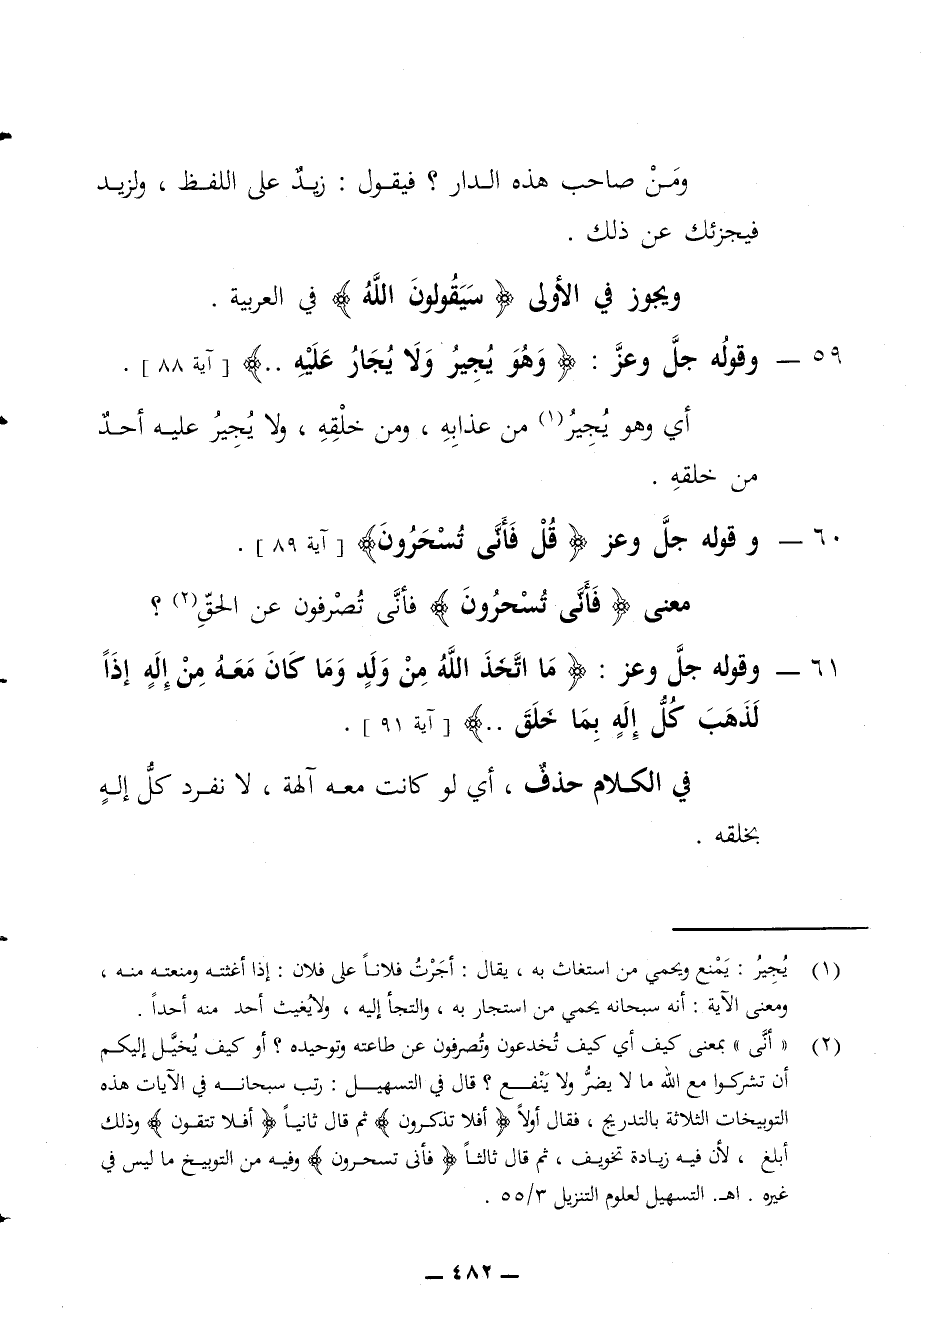 ومَنْ صاحب هذه الدار ؟ فيقول : زيدٌ على اللفظ ، ولزيد
فيجزئك عن ذلك .
ويجوز في الأولى ﴿ سَيَقُولونَ اللَّهُ ﴾ في العربية .
٥٩ ــ وقولُه جلَّ وعزَّ : ﴿ وَهُوَ يُجِيرُ وَلَا يُجَارُ عَلَيْهِ ..﴾ [ آية ٨٨ ] .
أي وهو يُجِيرُ (١) من عذابِهِ ، ومن خلْقِهِ ، ولا يُجِيرُ عليه أحدٌ
من خلقهِ .
٦٠ ــ و قوله جلَّ وعز ﴿ قُلْ فَأَنَّى تُسْحَرُونَ﴾ [ آية ٨٩ ] .
معنى ﴿ فَأَنَّى تُسْحَرُونَ ﴾ فأنَّى تُصْرفون عن الحقِّ (٢) ؟
٦١ ــ وقوله جلَّ وعز : ﴿ مَا اتَّخَذَ اللَّهُ مِنْ وَلَدٍ وَمَا كَانَ مَعَهُ مِنْ إِلَهٍ إذَاً
لَذَهَبَ كُلُّ إِلَهٍ بِمَا خَلَقَ ..﴾ [ آية ٩١ ] .
في الكلام حذفٌ ، أي لو كانت معه آلهة ، لا نفرد كلُّ إلهٍ
بخلقه .
(١) يُجِيرُ : يَمْنع ويحمي من استغاث به ، يقال : أجَرْتُ فلاناً على فلان : إذا أغثته ومنعته منه ،
ومعنى الآية : أنه سبحانه يحمي من استجار به ، والتجأ إليه ، ولايُغيث أحد منه أحداً .
(٢) « أنَّى » بمعنى كيف أي كيف تُخدعون وتُصرفون عن طاعته وتوحيده ؟ أو كيف يُخيَّل إليكم
أن تشركوا مع الله ما لا يضرُّ ولا يَنْفع ؟ قال في التسهيل : رتب سبحانه في الآيات هذه
التوبيخات الثلاثة بالتدريج ، فقال أولاً ﴿ أفلا تذكرون ﴾ ثم قال ثانياً ﴿ أفلا تتقون ﴾ وذلك
أبلغ ، لأن فيه زيادة تخويف ، ثم قال ثالثاً ﴿ فأنى تسحرون ﴾ وفيه من التوبيخ ما ليس في
غيره . اهـ. التسهيل لعلوم التنزيل ٥٥/٣ .
ــ ٤٨٢ ــ